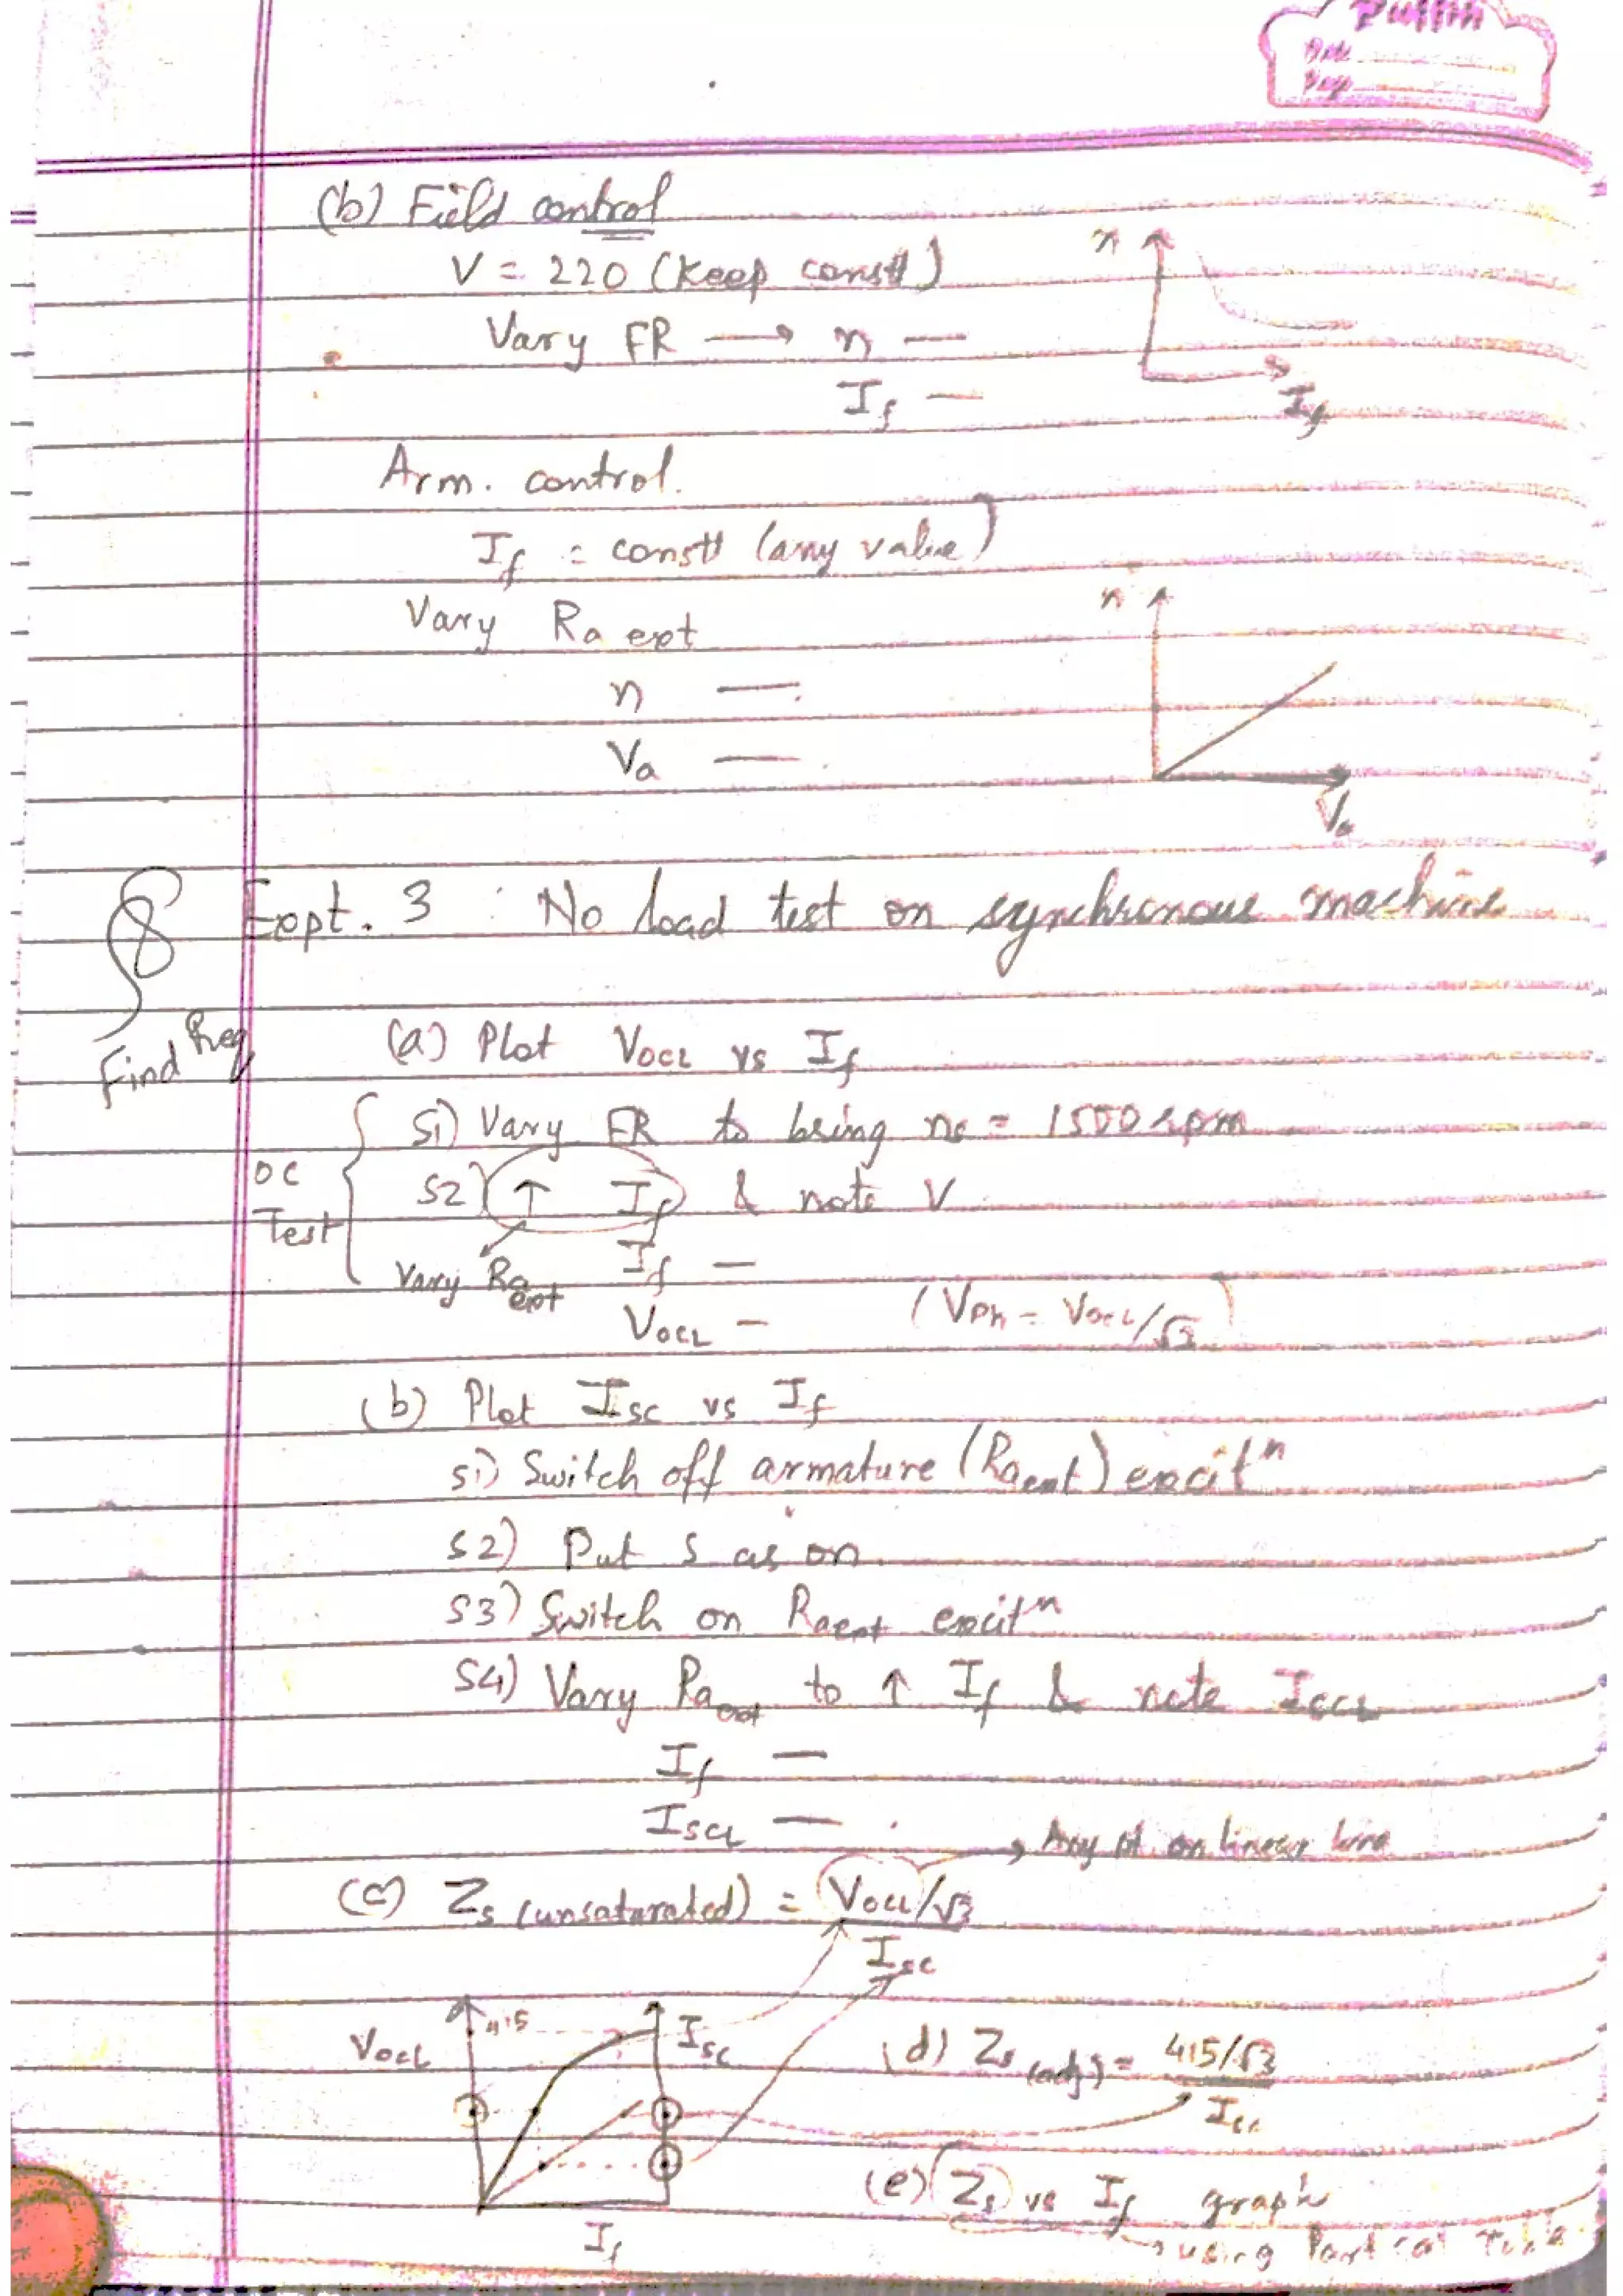 Puffin
Date
Page
(b) Field control
V = 220 (Keep constt)
n
Vary FR → n —
If —
If
Arm. control.
If = constt (any value)
Vary Ra ext
n
n —
Va —
Va
Expt. 3 : No load test on synchronous machine
Find Req
(a) Plot VOCL vs If
S1) Vary FR to bring ns = 1500 rpm
OC Test
S2) ↑ If & note V
Vary Ra ext
If —
VOCL — (VPh = VOCL/√3)
(b) Plot ISC vs If
S1) Switch off armature (Raext) excitn
S2) Put S as on
S3) Switch on Raext excitn
S4) Vary Raext to ↑ If & note ISCL
If —
ISCL —
→ Any pt on linear line
(c) Zs (unsaturated) = VOCL/√3
ISC
415
VOCL
ISC
(d) Zs (adj) = 415/√3
ISC
(e) Zs vs If graph
If
→ using Part (a) Table